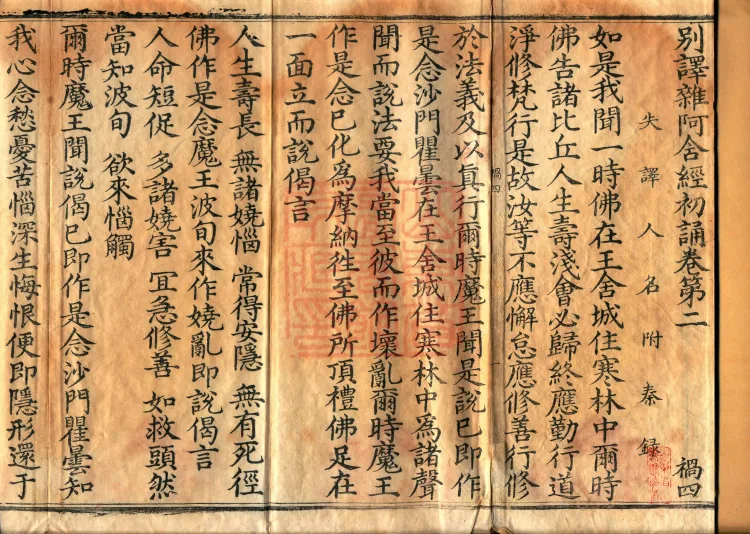 別譯雜阿舍經初誦卷第二 禍四
失譯人名附秦録
如是我聞一時佛在王舍城住寒林中爾時
佛告諸比丘人生壽淺會必歸終應勤行道
淨修梵行是故汝等不應懈怠應修善行修
禍四 一
於法義及以真行爾時魔王聞是說已即作
是念沙門瞿曇在王舍城住寒林中為諸聲
聞而說法要我當至彼而作壞亂爾時魔王
作是念已化為摩納徃至佛所頂禮佛足在
一面立而說偈言
人生壽長 無諸嬈惱 常得安隱 無有死徑
佛作是念魔王波旬來作嬈亂即說偈言
人命短促 多諸嬈害 冝急修善 如救頭然
當知波旬 欲來惱觸
爾時魔王聞說偈已即作是念沙門瞿曇知
我心念愁憂苦惱深生悔恨便即隱形還于